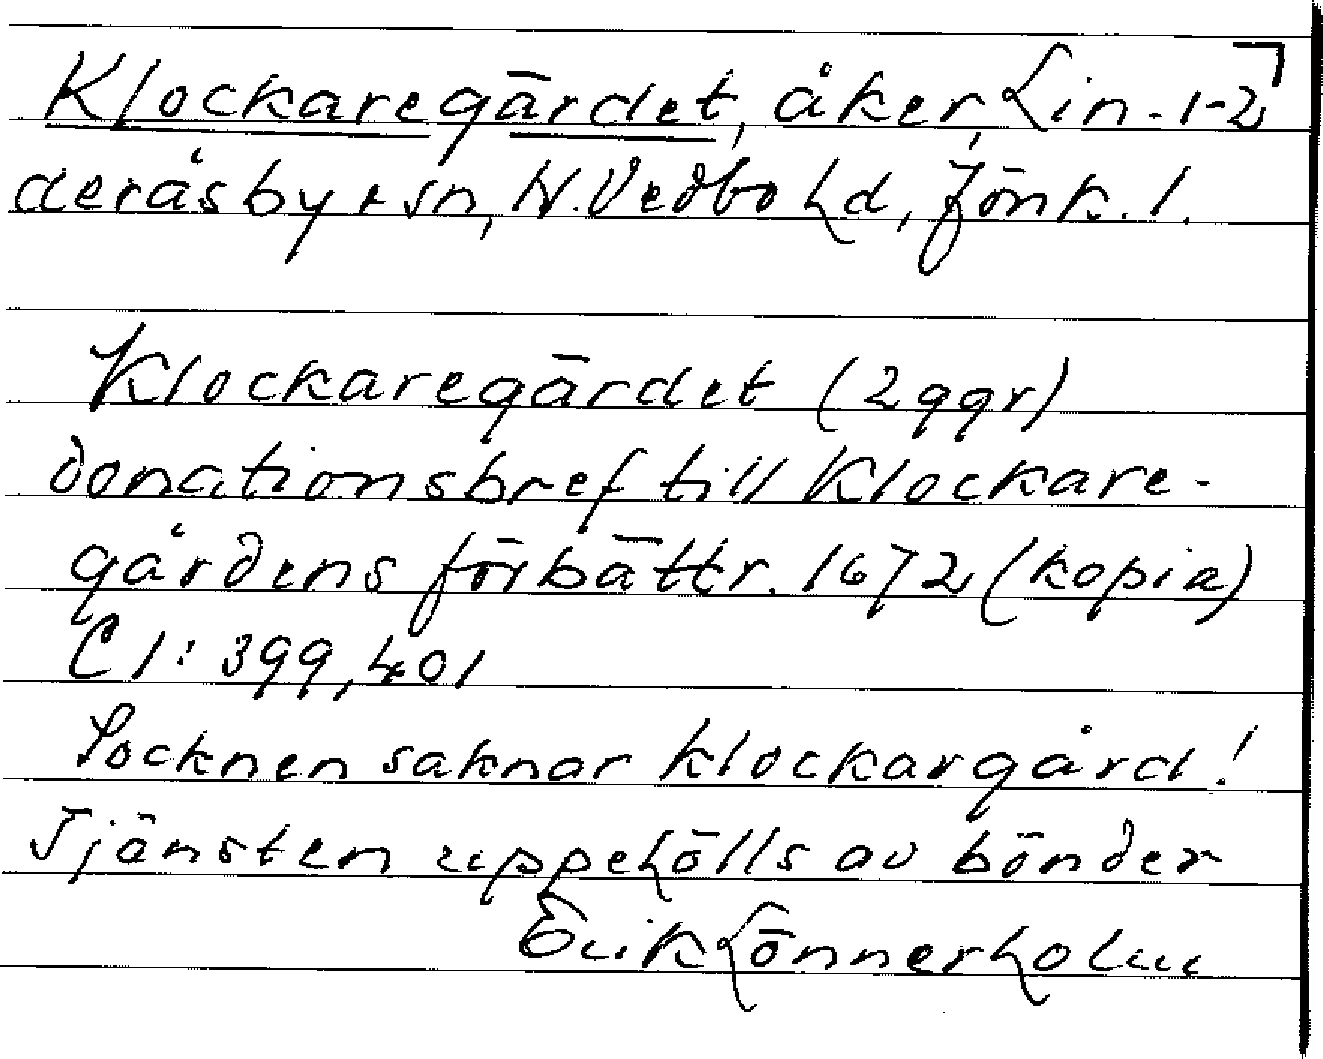 Klockaregärdet, åker, Lin- 1-2
deråsby + sn, N.Vedbo hd, Jönk. l.
Klockaregärdet (2 ggr)
donationsbref till Klockare-
gårdens förbättr. 1672 (kopia)
C1: 399, 401
Socknen saknar klockargård!
Tjänsten uppehölls av bönder
Erik Lönnerholm